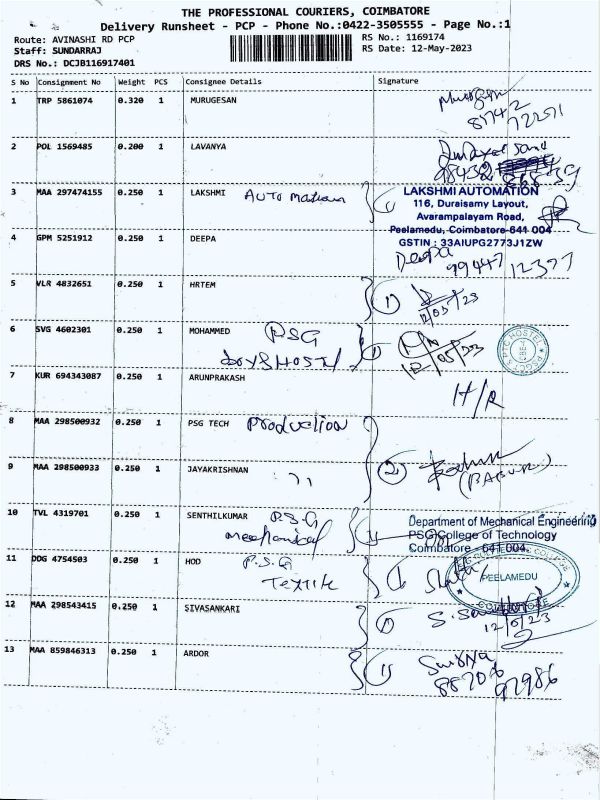 THE PROFESSIONAL COURIERS, COIMBATORE
Delivery Runsheet - PCP - Phone No.:0422-3505555 - Page No.:1
Route: AVINASHI RD PCP RS No.: 1169174
Staff: SUNDARRAJ RS Date: 12-May-2023
DRS No.: DCJB116917401
S No Consignment No Weight PCS Consignee Details Signature
1 TRP 5861074 0.320 1 MURUGESAN
87742
72271
2 POL 1569485 0.200 1 LAVANYA
98432
3 MAA 297474155 0.250 1 LAKSHMI AUTOMation 1
LAKSHMI AUTOMATION
116, Duraisamy Layout,
Avarampalayam Road,
Peelamedu, Coimbatore-641 004
GSTIN : 33AIUPG2773J1ZW
4 GPM 5251912 0.250 1 DEEPA Deepa
99447 12377
5 VLR 4832651 0.250 1 HRTEM 1)
12/05/23
6 SVG 4602301 0.250 1 MOHAMMED PSG
boys HOSTEL 1
12/05/23
7 KUR 694343087 0.250 1 ARUNPRAKASH H/R
8 MAA 298500932 0.250 1 PSG TECH Production
9 MAA 298500933 0.250 1 JAYAKRISHNAN ,, 2)
(BABU.R)
10 TVL 4319701 0.250 1 SENTHILKUMAR P.S.G
mechanical
Department of Mechanical Engineering
PSG College of Technology
Coimbatore - 641 004
11 DDG 4754503 0.250 1 HOD P.S.G
Textile
PEELAMEDU
COIMBATORE
12 MAA 298543415 0.250 1 SIVASANKARI 1)
12/5/23
13 MAA 859846313 0.250 1 ARDOR 1)
Surya
88706
97986